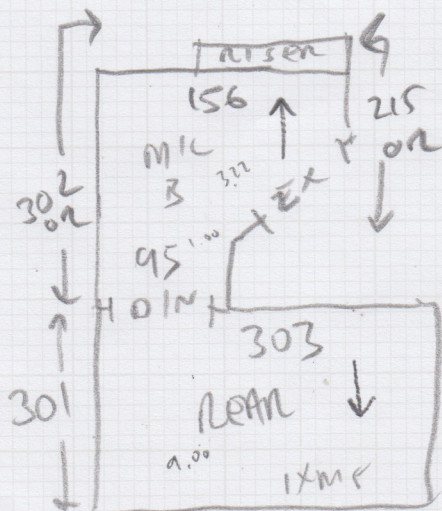 RISER
156
215
OR
M/C
B
3.22
302
OR
E
95
1.00
DIN
303
301
REAR
9.00
1XMF